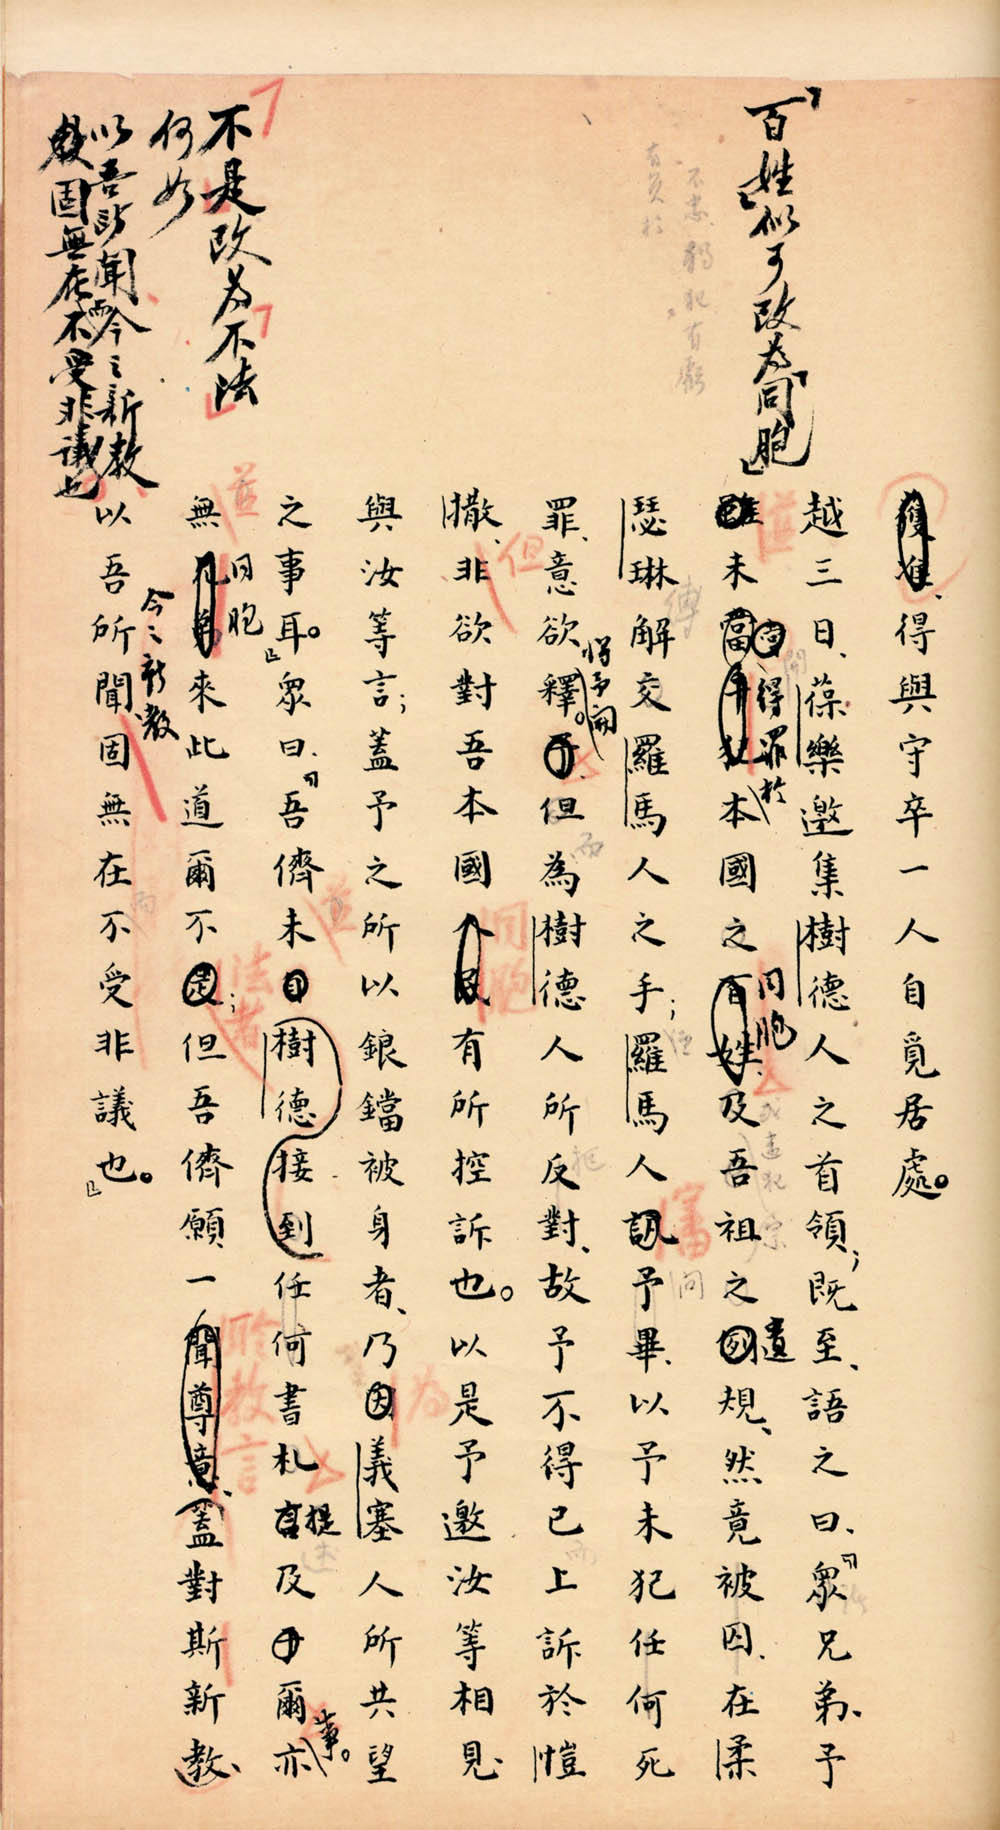 百姓似可改為同胞
不是改為不法
何如
以吾所聞今之新教
教固無在而不受非議也
獲准、得與守卒一人自覓居處。
越三日、葆樂邀集樹德人之首領；既至、語之曰、「眾兄弟、予
雖未嘗干犯本國之百姓、及吾祖之例規、然竟被囚、在柔
得罪於
同胞
遺
瑟琳解交羅馬人之手；羅馬人訊予畢、以予未犯任何死
罪、意欲釋予。但為樹德人所反對、故予不得已上訴於愷
將予開
撒、非欲對吾本國人民有所控訴也。以是予邀汝等相見、
但
同胞
與汝等言；蓋予之所以鋃鐺被身者、乃因義塞人所共望
為
之事耳。」眾曰、「吾儕未自樹德接到任何書札言及爾、亦
提
事。
無兄弟來此道爾不是；但吾儕願一聞尊意、蓋對斯新教、
同胞
法者
聆教言
以吾所聞固無在不受非議也。」
今之新教